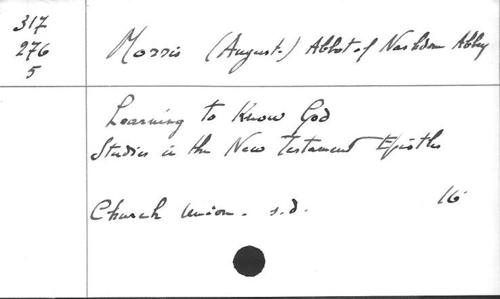 317
276
5
Morris (August.) Abbot of Nashdom Abbey
Learning to Know God
Studies in the New Testament Epistles
Church Union. s.d. 16